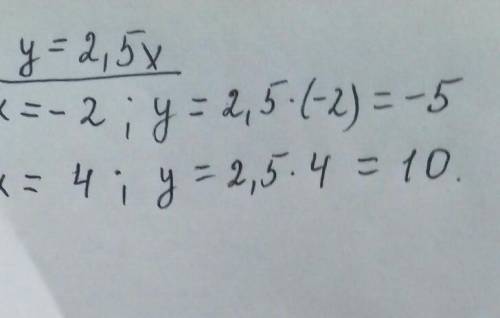 y = 2,5x
x = -2 ; y = 2,5·(-2) = -5
x = 4 ; y = 2,5·4 = 10.